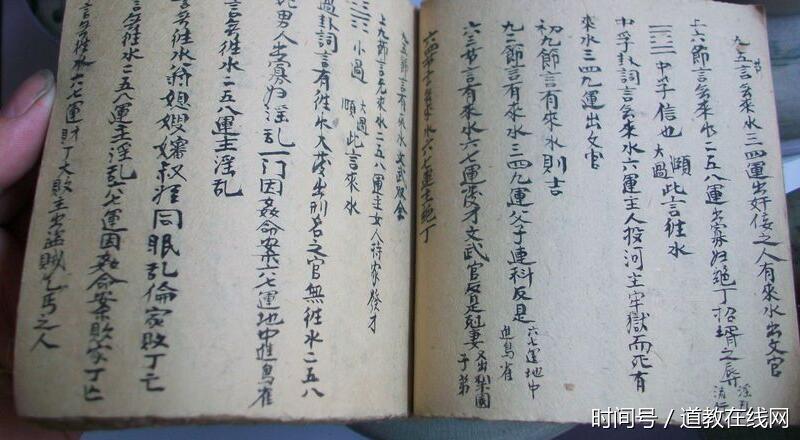 九五節言無來水三四運出奸佞之人有來水出文官
上六節言無來水二五八運出寡妇絶丁招壻之辱
中孚信也 大過 頤 此言徃水
中孚卦詞言無來水六運主人投河主牢獄而死有
來水三四九運出文官
初九節言有來水則吉
九二節言有來水三四九運父子連科反是六七運地中進鳥雀
六三节言有來水六七運發才文武官反是尅妻又出梨園子弟
六四节言無來水六七運主絶丁
九五節言有來水文武双全
上九節言无來水二五八運主女人持家發才
小過 大過 頤 此言來水
過卦詞言有徃水大發出刑名之官無徃水二五八
男人出寡妇淫乱一门因姦命案六七運地中進鳥雀
言無徃水二五八運主淫乱
言無徃水蒋姐嫂嬸叔侄同眠乱倫家敗丁亡
言無徃水二五八運主淫乱六七運因姦命案敗家丁亡
言無徃水六七運財丁大敗主出盗賊乞丐之人
时间号 / 道教在线网